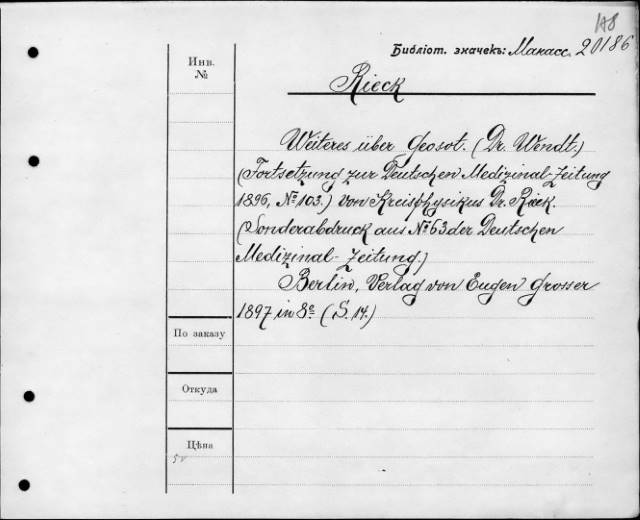 118
Библіот. значекъ: Манасс. 20186
Инв. №
Rieck
Weiteres über Geosot. (Dr. Wendt.)
(Fortsetzung zur Deutschen Medizinal-Zeitung
1896, № 103.) von Kreisphysikus Dr. Rieck.
(Sonderabdruck aus № 63 der Deutschen
Medizinal-Zeitung.)
Berlin, Verlag von Eugen Grosser
1897 in 8º (S. 14.)
По заказу
Откуда
Цѣна